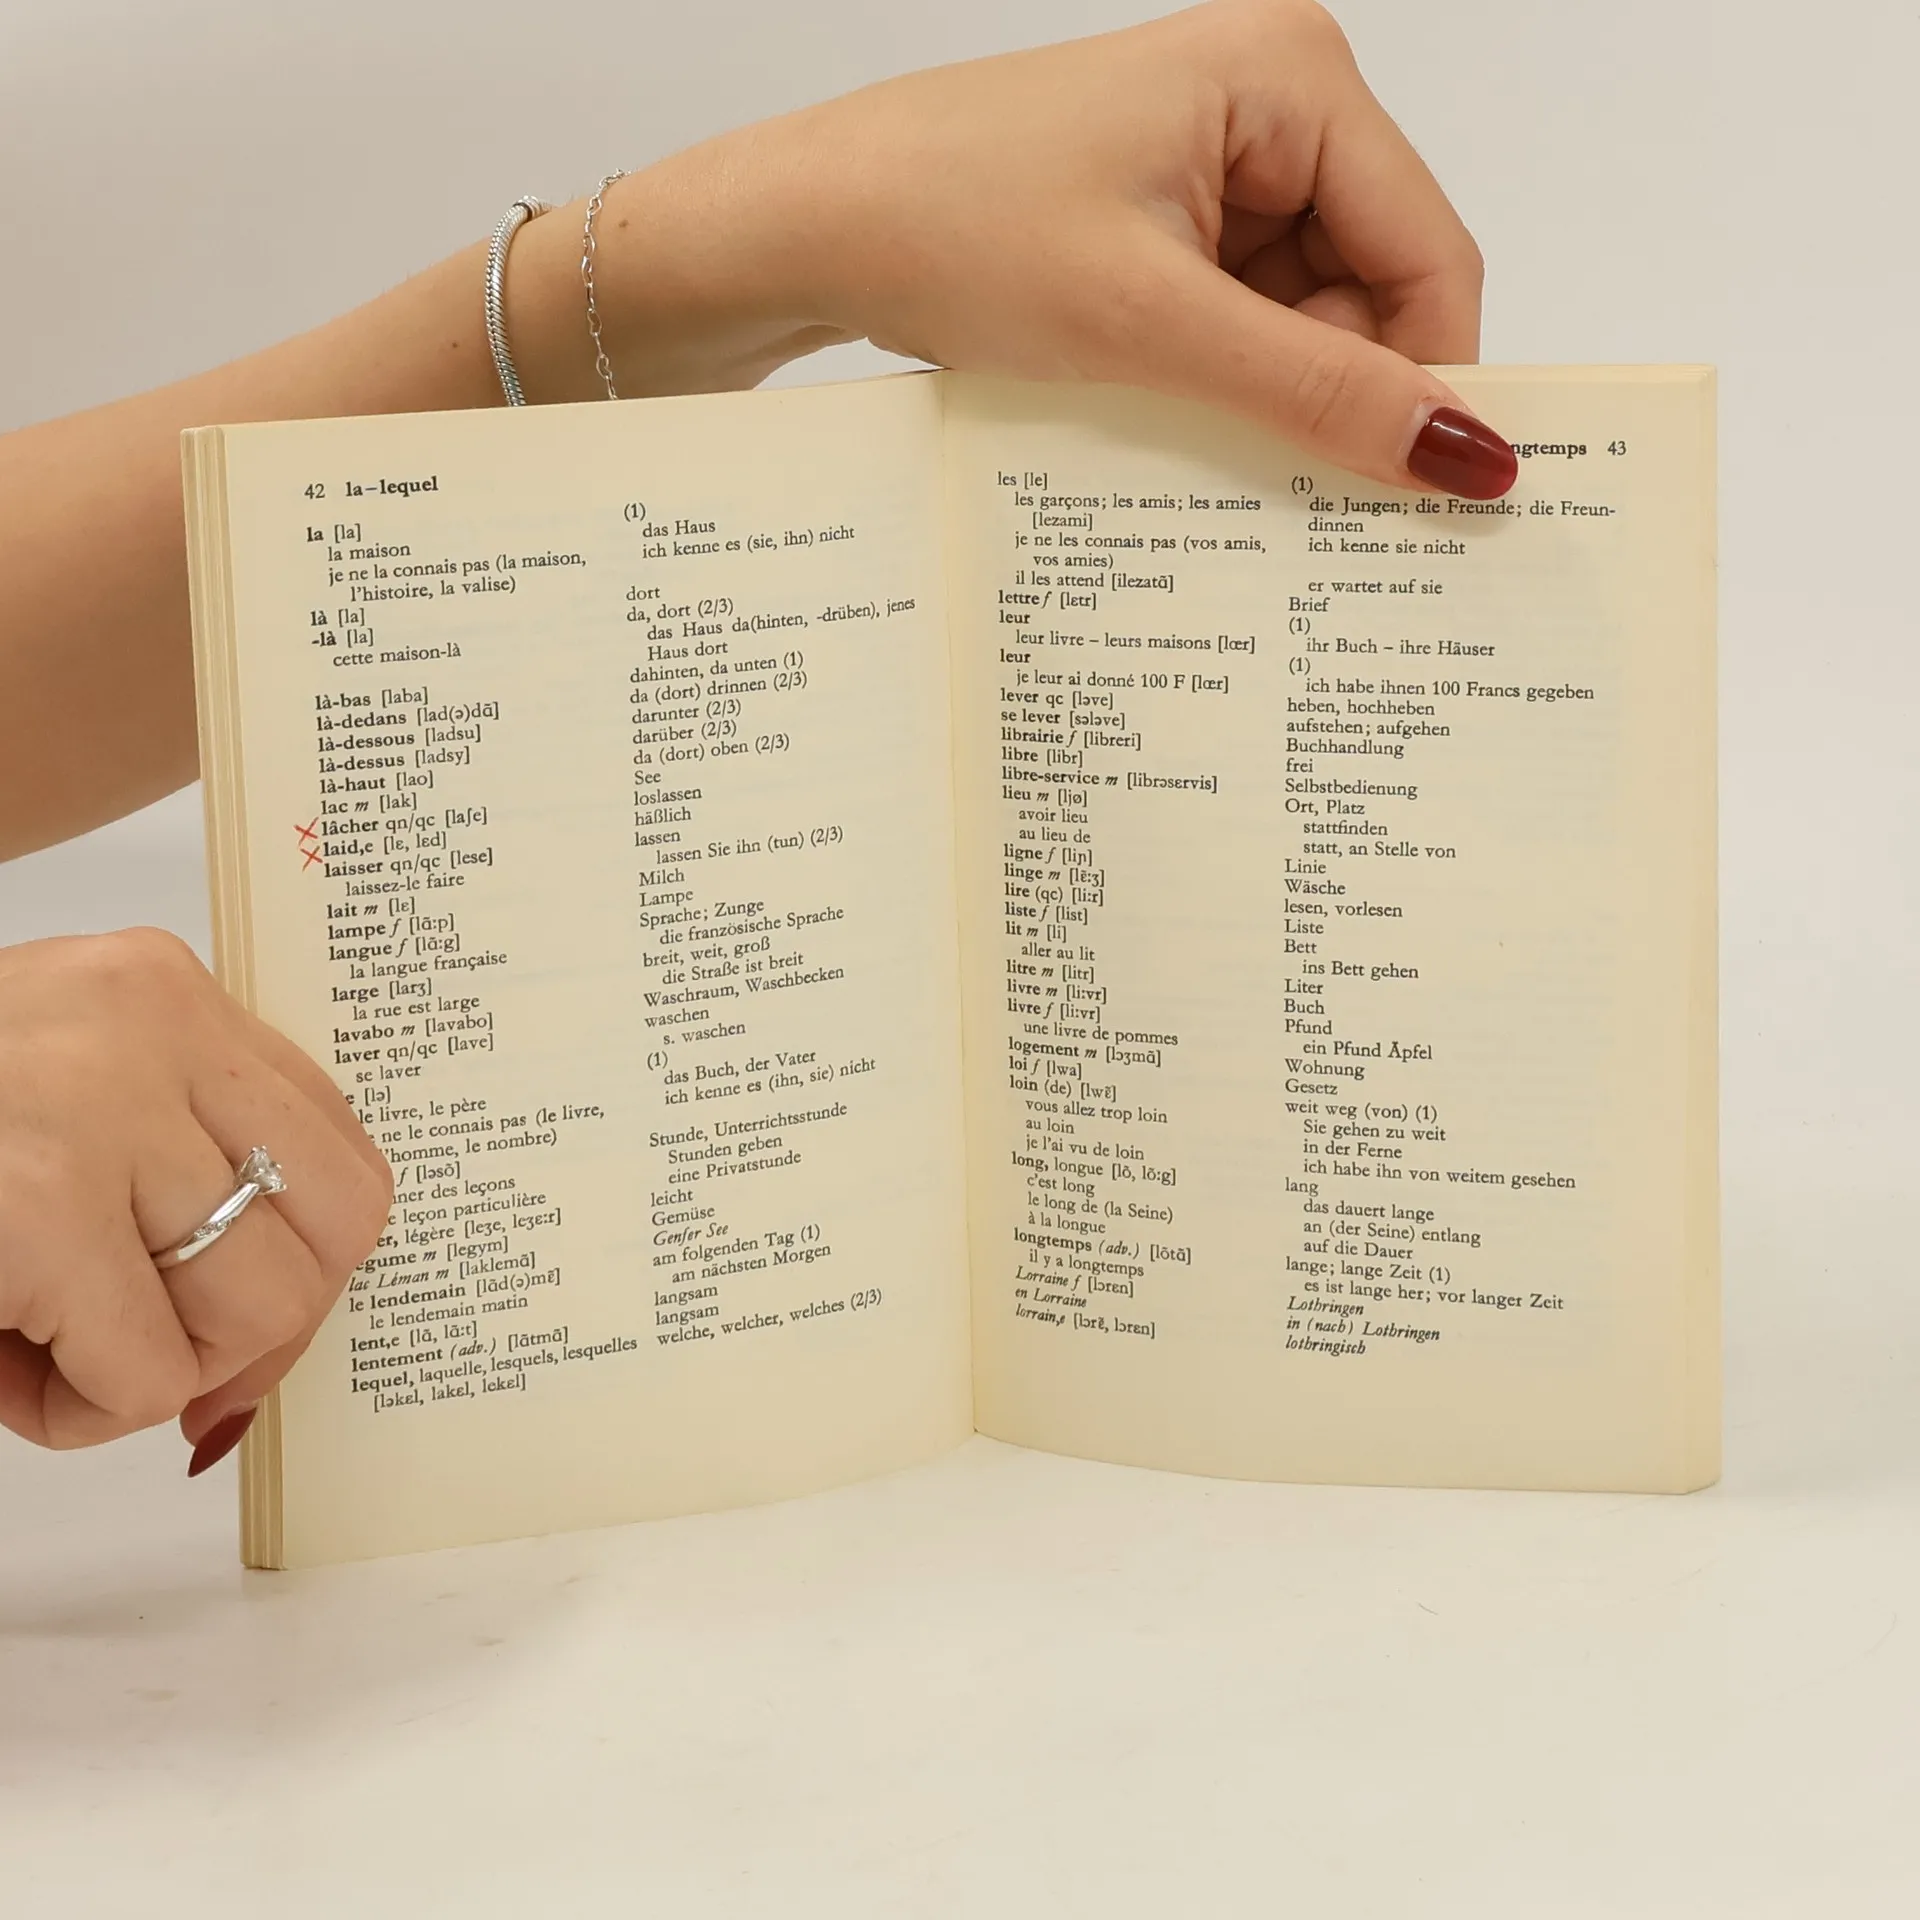 42 la–lequel
la [la]
la maison
je ne la connais pas (la maison,
l'histoire, la valise)
là [la]
-là [la]
cette maison-là
là-bas [laba]
là-dedans [lad(ə)dã]
là-dessous [ladsu]
là-dessus [ladsy]
là-haut [lao]
lac m [lak]
lâcher qn/qc [laʃe]
laid,e [lɛ, lɛd]
laisser qn/qc [lese]
laissez-le faire
lait m [lɛ]
lampe f [lã:p]
langue f [lã:g]
la langue française
large [larʒ]
la rue est large
lavabo m [lavabo]
laver qn/qc [lave]
se laver
[lə]
le livre, le père
ne le connais pas (le livre,
l'homme, le nombre)
f [ləsõ]
des leçons
leçon particulière
légère [leʒe, leʒɛ:r]
m [legym]
lac Léman m [laklemã]
le lendemain [lãd(ə)mɛ̃]
le lendemain matin
lent,e [lã, lã:t]
lentement (adv.) [lãtmã]
lequel, laquelle, lesquels, lesquelles
[ləkɛl, lakɛl, lekɛl]
(1)
das Haus
ich kenne es (sie, ihn) nicht
dort
da, dort (2/3)
das Haus da(hinten, -drüben), jenes
Haus dort
dahinten, da unten (1)
da (dort) drinnen (2/3)
darunter (2/3)
darüber (2/3)
da (dort) oben (2/3)
See
loslassen
häßlich
lassen
lassen Sie ihn (tun) (2/3)
Milch
Lampe
Sprache; Zunge
die französische Sprache
breit, weit, groß
die Straße ist breit
Waschraum, Waschbecken
waschen
s. waschen
(1)
das Buch, der Vater
ich kenne es (ihn, sie) nicht
Stunde, Unterrichtsstunde
Stunden geben
eine Privatstunde
leicht
Gemüse
Genfer See
am folgenden Tag (1)
am nächsten Morgen
langsam
langsam
welche, welcher, welches (2/3)
43
les [le]
les garçons; les amis; les amies
[lezami]
je ne les connais pas (vos amis,
vos amies)
il les attend [ilezatã]
lettre f [lɛtr]
leur
leur livre – leurs maisons [lœr]
leur
je leur ai donné 100 F [lœr]
lever qc [ləve]
se lever [sələve]
librairie f [libreri]
libre [libr]
libre-service m [librəsɛrvis]
lieu m [ljø]
avoir lieu
au lieu de
ligne f [liɲ]
linge m [lɛ̃:ʒ]
lire (qc) [li:r]
liste f [list]
lit m [li]
aller au lit
litre m [litr]
livre m [li:vr]
livre f [li:vr]
une livre de pommes
logement m [lɔʒmã]
loi f [lwa]
loin (de) [lwɛ̃]
vous allez trop loin
au loin
je l'ai vu de loin
long, longue [lõ, lõ:g]
c'est long
le long de (la Seine)
à la longue
longtemps (adv.) [lõtã]
il y a longtemps
Lorraine f [lɔrɛn]
en Lorraine
lorrain,e [lɔrɛ̃, lɔrɛn]
(1)
die Jungen; die Freunde; die Freun-
dinnen
ich kenne sie nicht
er wartet auf sie
Brief
(1)
ihr Buch – ihre Häuser
(1)
ich habe ihnen 100 Francs gegeben
heben, hochheben
aufstehen; aufgehen
Buchhandlung
frei
Selbstbedienung
Ort, Platz
stattfinden
statt, an Stelle von
Linie
Wäsche
lesen, vorlesen
Liste
Bett
ins Bett gehen
Liter
Buch
Pfund
ein Pfund Äpfel
Wohnung
Gesetz
weit weg (von) (1)
Sie gehen zu weit
in der Ferne
ich habe ihn von weitem gesehen
lang
das dauert lange
an (der Seine) entlang
auf die Dauer
lange; lange Zeit (1)
es ist lange her; vor langer Zeit
Lothringen
in (nach) Lothringen
lothringisch